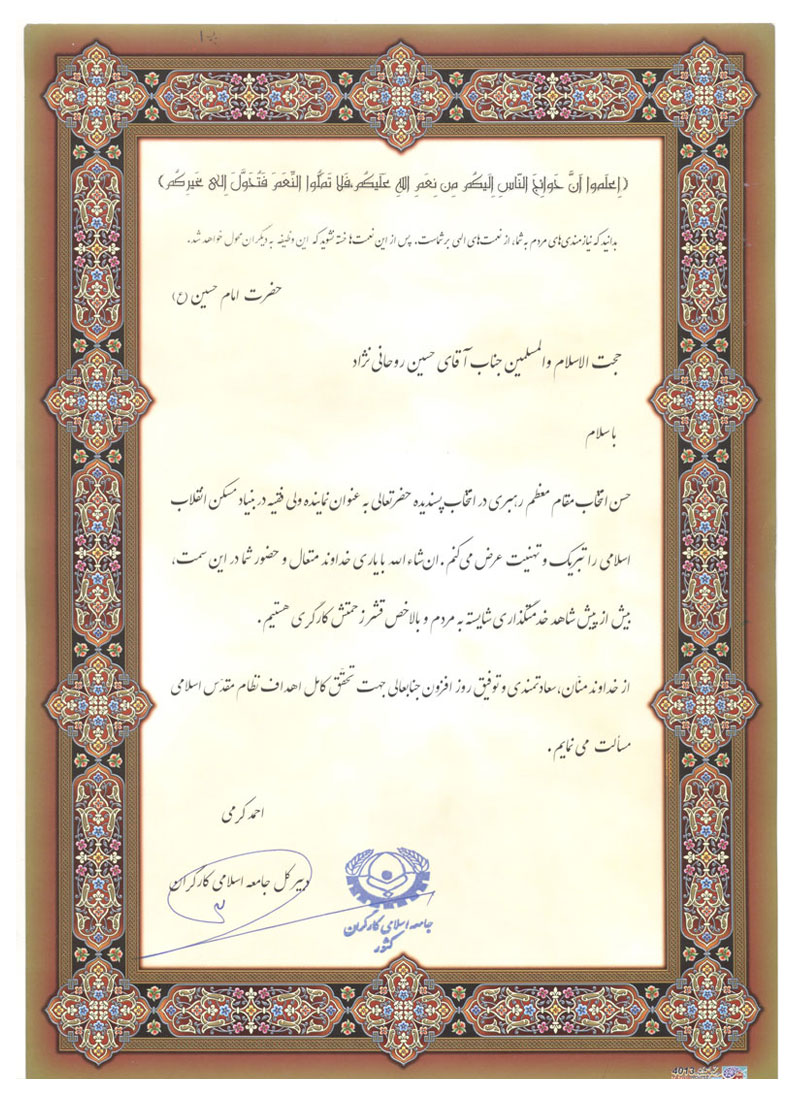 (إِعلَموا أَنَّ حَوائِجَ النّاسِ إِلَیکُم مِن نِعَمِ اللهِ عَلَیکُم،فَلا تَمَلُّوا النِّعَمَ فَتُحَوَّلَ إِلی غَیرِکُم)
بدانید که نیازمندی‌های مردم به شما، از نعمت‌های الهی بر شماست. پس از این نعمت‌ها خسته نشوید که این وظیفه به دیگران محول خواهد شد.
حضرت امام حسین (ع)
حجت الاسلام والمسلمین جناب آقای حسین روحانی نژاد
باسلام
حسن انتخاب مقام معظم رهبری در انتخاب پسندیده حضرتعالی به عنوان نماینده ولی فقیه در بنیاد مسکن انقلاب
اسلامی را تبریک و تهنیت عرض می‌کنم. ان‌شاءالله با یاری خداوند متعال و حضور شما در این سمت،
بیش از پیش شاهد خدمتگذاری شایسته به مردم و بالاخص قشر زحمتکش کارگری هستیم.
از خداوند منّان، سعادتمندی و توفیق روز افزون جنابعالی جهت تحقّق کامل اهداف نظام مقدّس اسلامی
مسألت می نمایم.
احمد کرمی
دبیرکل جامعه اسلامی کارگران
جامعه اسلامی کارگران
کشور
4013